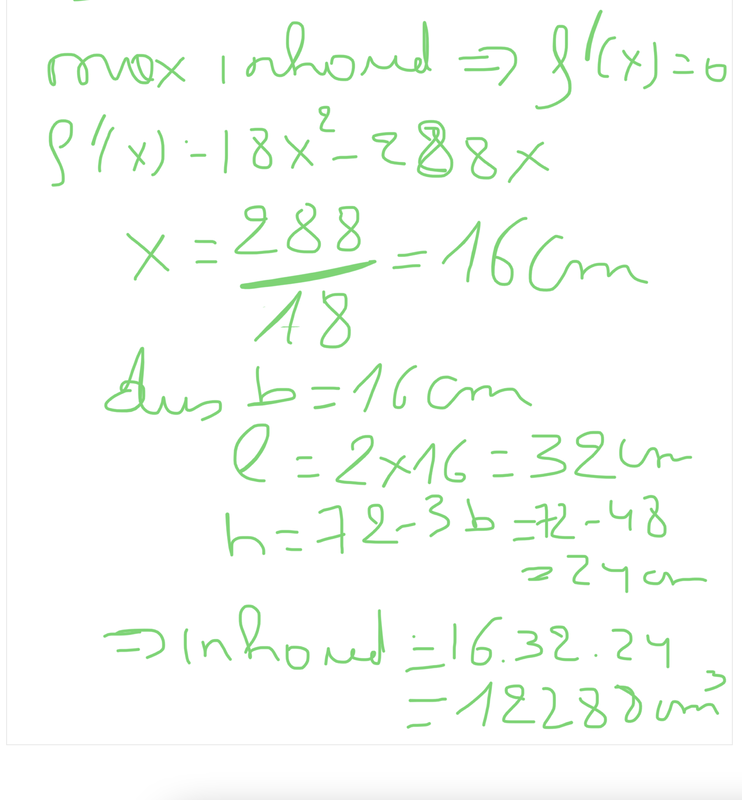 max inhoud => f'(x) = 0
f'(x) = 18x² - 288x
x = 288/18 = 16cm
dus b = 16cm
l = 2x16 = 32cm
h = 72 - 3b = 72 - 48
= 24cm
=> inhoud = 16.32.24
= 12288cm³